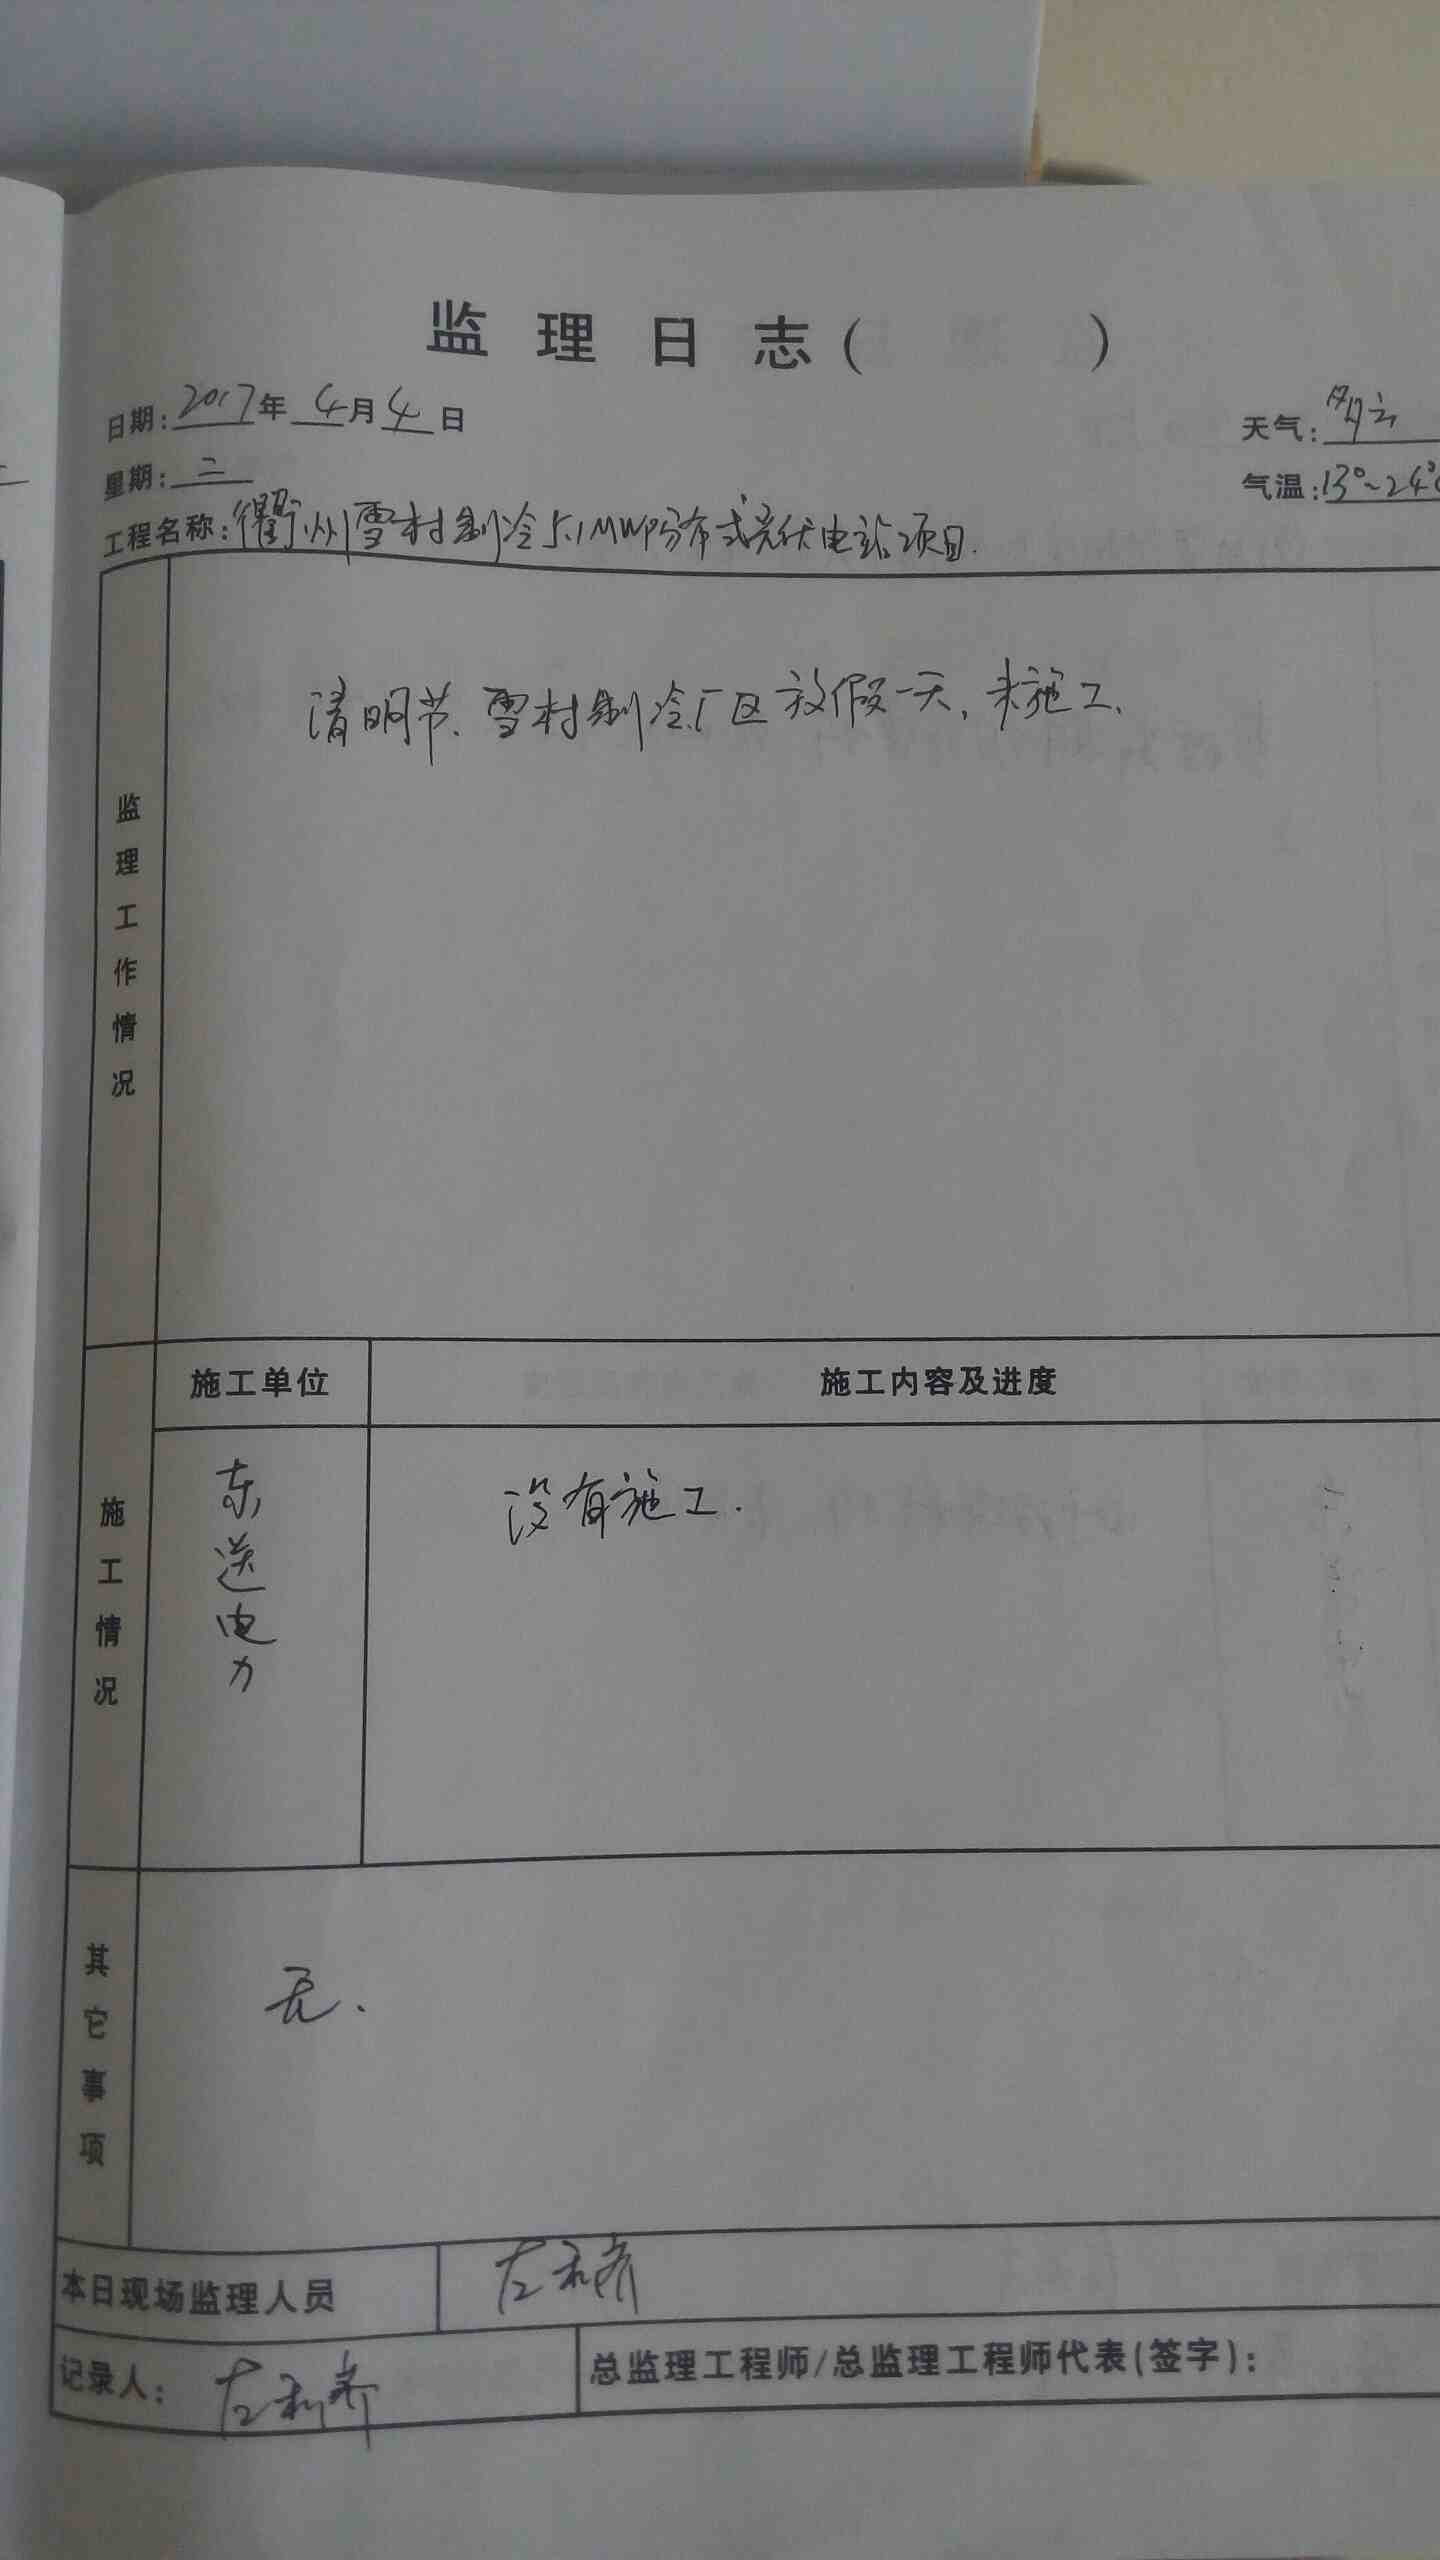 监理日志( )
日期: 2017年 4月 4日
天气: 多云
星期: 二
气温: 13°~24°
工程名称: 衢州雪村制冷5.1MWP分布式光伏电站项目.
监理工作情况
清明节、雪村制冷厂区放假一天,未施工.
施工单位
施工内容及进度
施工情况
东送电力
没有施工.
其它事项
无.
本日现场监理人员
记录人:
总监理工程师/总监理工程师代表(签字):